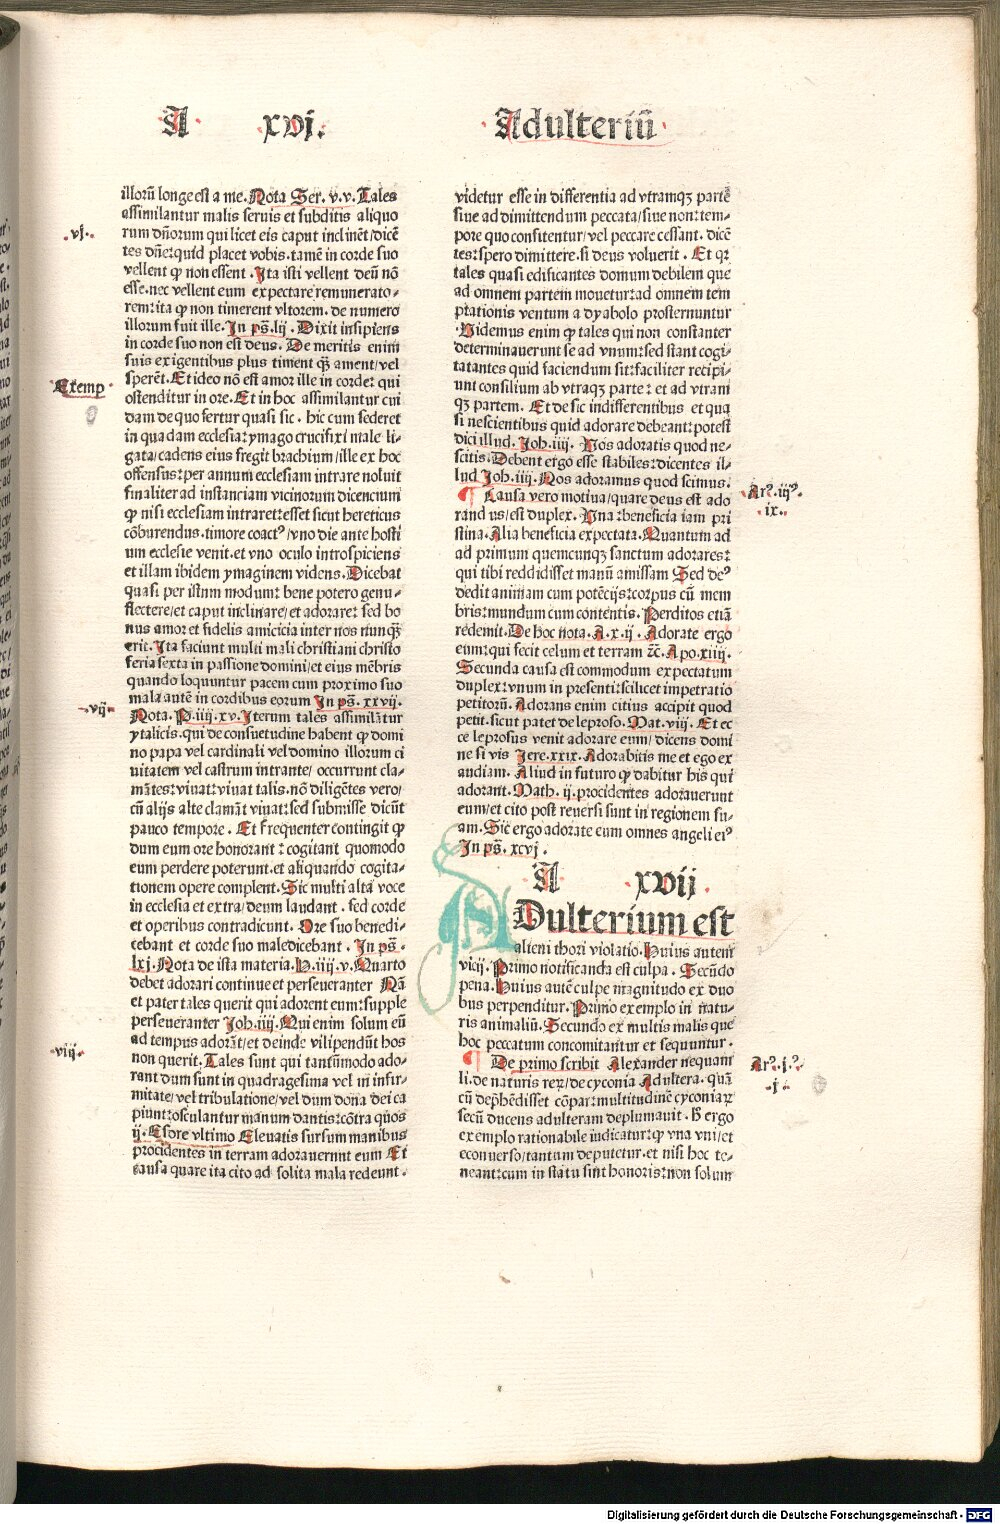 A xvj.
Adulteriū
illorū longe est a me. Nota Ser. v. v. Tales
assimilantur malis seruis et subditis aliquo
rum dn̄orum qui licet eis caput inclinēt/dicē
tes dn̄e: quid placet vobis. tamē in corde suo
vellent ꝙ non essent. Ita isti vellent deū nō
esse. nec vellent eum expectare remunerato-
rem: ita ꝙ non timerent vltorem. de numero
illorum fuit ille. In ps̄. lij. Dixit insipiens
in corde suo non est deus. De meritis enim
suis exigentibus plus timent qm̄ ament/vel
sperēt. Et ideo nō est amor ille in corde: qui
ostenditur in ore. Et in hoc assimilantur cui
dam de quo fertur quasi sic. hic cum sederet
in quadam ecclesia: ymago crucifixi male li-
gata/cadens eius fregit brachium/ille ex hoc
offensus: per annum ecclesiam intrare noluit
finaliter ad instanciam vicinorum dicencium
ꝙ nisi ecclesiam intraret: esset sicut hereticus
cōburendus. timore coactꝰ/vno die ante hosti
um ecclesie venit. et vno oculo introspiciens
et illam ibidem ymaginem videns. Dicebat
quasi per istum modum: bene potero genu-
flectere/et caput inclinare/et adorare: sed bo
nus amor et fidelis amicicia inter nos nunqm̄
erit. Ita faciunt multi mali christiani christo
feria sexta in passione domini/et eius mēbris
quando loquuntur pacem cum proximo suo
mala autē in cordibus eorum In ps̄. xxvij.
Nota. P. iiij. xv. Iterum tales assimilātur
ytalicis. qui de consuetudine habent ꝙ domi
no papa vel cardinali vel domino illorum ci
uitatem vel castrum intrante/ occurrunt cla-
mātes: viuat: viuat talis. nō diligētes vero/
cū alijs alte clamāt viuat: sed submisse dicūt
pauco tempore. Et frequenter contingit ꝙ
dum eum ore honorant: cogitant quomodo
eum perdere poterunt. et aliquando cogita-
tionem opere complent. Sic multi alta voce
in ecclesia et extra/deum laudant. sed corde
et operibus contradicunt. Ore suo benedi-
cebant et corde suo maledicebant. In ps̄.
lxj. Nota de ista materia. H. iiij. v. Quarto
debet adorari continue et perseueranter Nā
et pater tales querit qui adorent eum: supple
perseueranter Joh. iiij. Qui enim solum eū
ad tempus adorāt/et deinde vilipendūt hos
non querit. Tales sunt qui tantūmodo ado-
rant dum sunt in quadragesima vel in infir-
mitate/vel tribulatione/vel dum dona dei ca
piunt: osculantur manum dantis: cōtra quos
ij. Esdre vltimo Eleuatis sursum manibus
procidentes in terram adorauerunt eum Et
causa quare ita cito ad solita mala redeunt.
.vj.
Exemp
.vij.
.viij.
videtur esse in differentia ad vtramqꝫ partē
siue ad dimittendum peccata/siue non: tem-
pore quo confitentur/vel peccare cessant. dicē
tes: spero dimittere. si deus voluerit. Et qr
tales quasi edificantes domum debilem que
ad omnem partem mouetur: ad omnem tem
ptationis ventum a dyabolo prosternuntur
Videmus enim ꝙ tales qui non constanter
determinauerunt se ad vnum: sed stant cogi
tatantes quid faciendum sit: faciliter recipi-
unt consilium ab vtraqꝫ parte: et ad vtram
qꝫ partem. Et de sic indifferentibus et qua
si nescientibus quid adorare debeant: potest
dici illud. Joh. iiij. Vos adoratis quod ne-
scitis. Debent ergo esse stabiles: dicentes il-
lud Joh. iiij. Nos adoramus quod scimus.
¶ Causa vero motiua/quare deus est ado
randus/est duplex. Vna: beneficia iam pri
stina. Alia beneficia expectata. Quantum ad
ad primum quemcunqꝫ sanctum adorares:
qui tibi reddidisset manū amissam Sed deꝰ
dedit animam cum potēcijs: corpus cū mem
bris: mundum cum contentis. Perditos etiā
redemit. De hoc nota. A. x. ij. Adorate ergo
eum: qui fecit celum et terram ⁊c̄. Apo. xiiij.
Secunda causa est commodum expectatum
duplex: vnum in presenti: scilicet impetratio
petitorū. Adorans enim citius accipit quod
petit. sicut patet de leproso. Mat. viij. Et ec
ce leprosus venit adorare eum/ dicens domi
ne si vis Jere. xxix. Adorabitis me et ego ex
audiam. Aliud in futuro ꝙ dabitur his qui
adorant. Math. ij. procidentes adorauerunt
eum/et cito post reuersi sunt in regionem su-
am. Sic ergo adorate eum omnes angeli eiꝰ
In ps̄. xcvj.
Arꝰ. iijꝰ.
ix.
A xvij.
ADulterium est
alieni thori violatio. Huius autem
vicij. Primo notificanda est culpa. Secūdo
pena. Huius autē culpe magnitudo ex duo
bus perpenditur. Primo exemplo in natu-
ris animaliū. Secundo ex multis malis que
hoc peccatum concomitantur et sequuntur.
¶ De primo scribit Alexander nequam
li. de naturis reꝝ/de cyconia Adultera. quā
cū dephēdisset cōpar: multitudinē cyconiaꝝ
secū ducens adulteram deplumauit. H̄ ergo
exemplo rationabile iudicatur: ꝙ vna vni/et
econuerso/tantum deputetur. et nisi hoc te-
neant: cum in statu sint honoris: non solum
Arꝰ. j.ꝰ
.j.
Digitalisierung gefördert durch die Deutsche Forschungsgemeinschaft - DFG